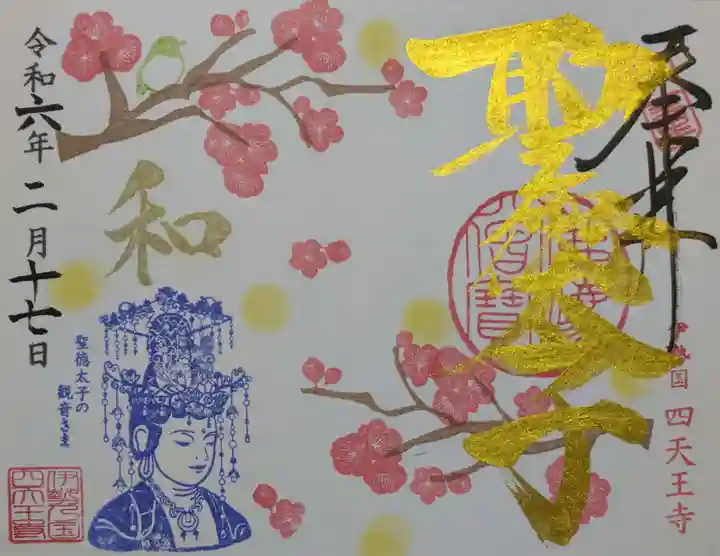 奉拝
聖徳太子
伊勢国 四天王寺
令和六年 二月十七日
和
聖徳太子の
観音さま
伊勢之国
四天王寺